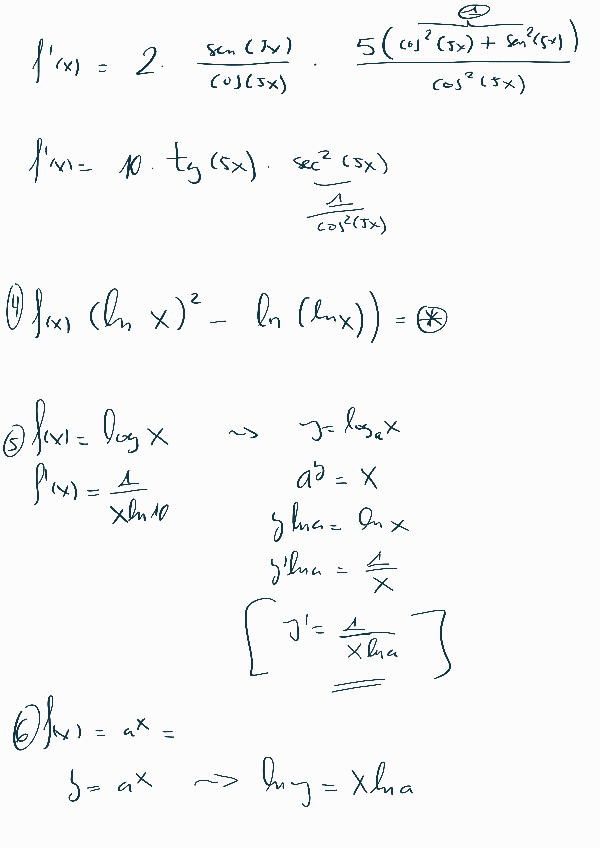 f'(x) = 2 · sen(5x)/cos(5x) · 5(cos²(5x) + sen²(5x))/cos²(5x)
1
f'(x) = 10 · tg(5x) · sec²(5x)
1/cos²(5x)
④ f(x) (ln x)² − ln(lnx)) = ⊛
⑤ f(x) = log x ⇝ y = logₐx
f'(x) = 1/(x ln 10) aʸ = x
y ln a = ln x
y' ln a = 1/x
[ y' = 1/(x ln a) ]
⑥ f(x) = aˣ =
y = aˣ ⇝ ln y = x ln a